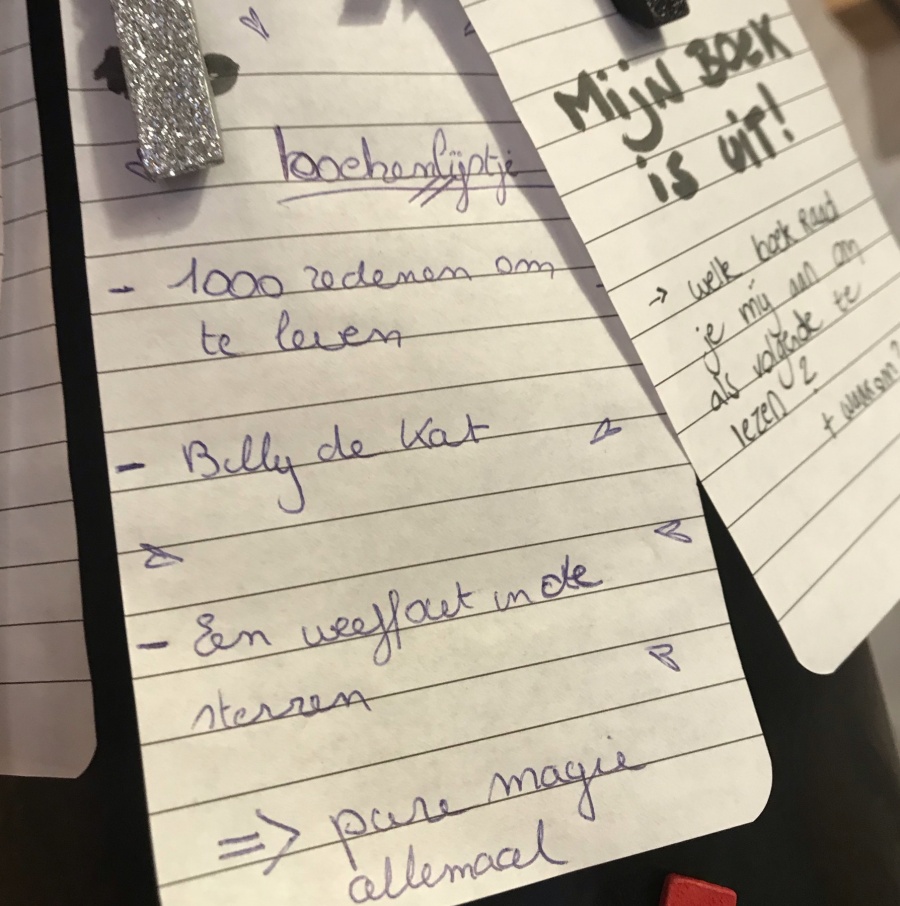 boekenlijstje
- 1000 redenen om
te leven
- Billy de Kat
- Een weeffout in de
sterren
=> pure magie
allemaal
MIJN BOEK
is UIT!
→ welk boek raad
je mij aan om
als volgende te
lezen?
+ waarom?